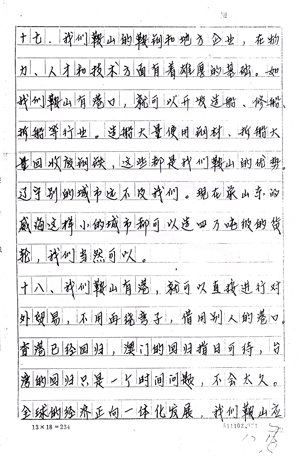 十七、我们鞍山的鞍钢和地方企业，在物
力、人才和技术方面有着雄厚的基础。如
我们鞍山有港口，就可以开发造船、修船、
拆船等行业。造船大量使用钢材、拆船大
量回收废钢铁，这些都是我们鞍山的优势。
辽宁别的城市还不及我们。现在象山东的
威海这样小的城市都可以造四万吨级的货
轮，我们当然可以。
十八、我们鞍山有港，就可以直接进行对
外贸易，不用再绕弯子，借用别人的港口。
香港已经回归，澳门的回归指日可待，台
湾的回归只是一个时间问题，不会太久。
全球的经济正向一体化发展，我们鞍山应
13×18=234